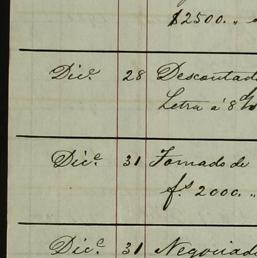 $2500.
Dicᵉ 28 Descontad
Letra á 8 d/
Dicᵉ 31 Tomado de
f.ˢ 2000.
Dicᵉ 31 Negociad